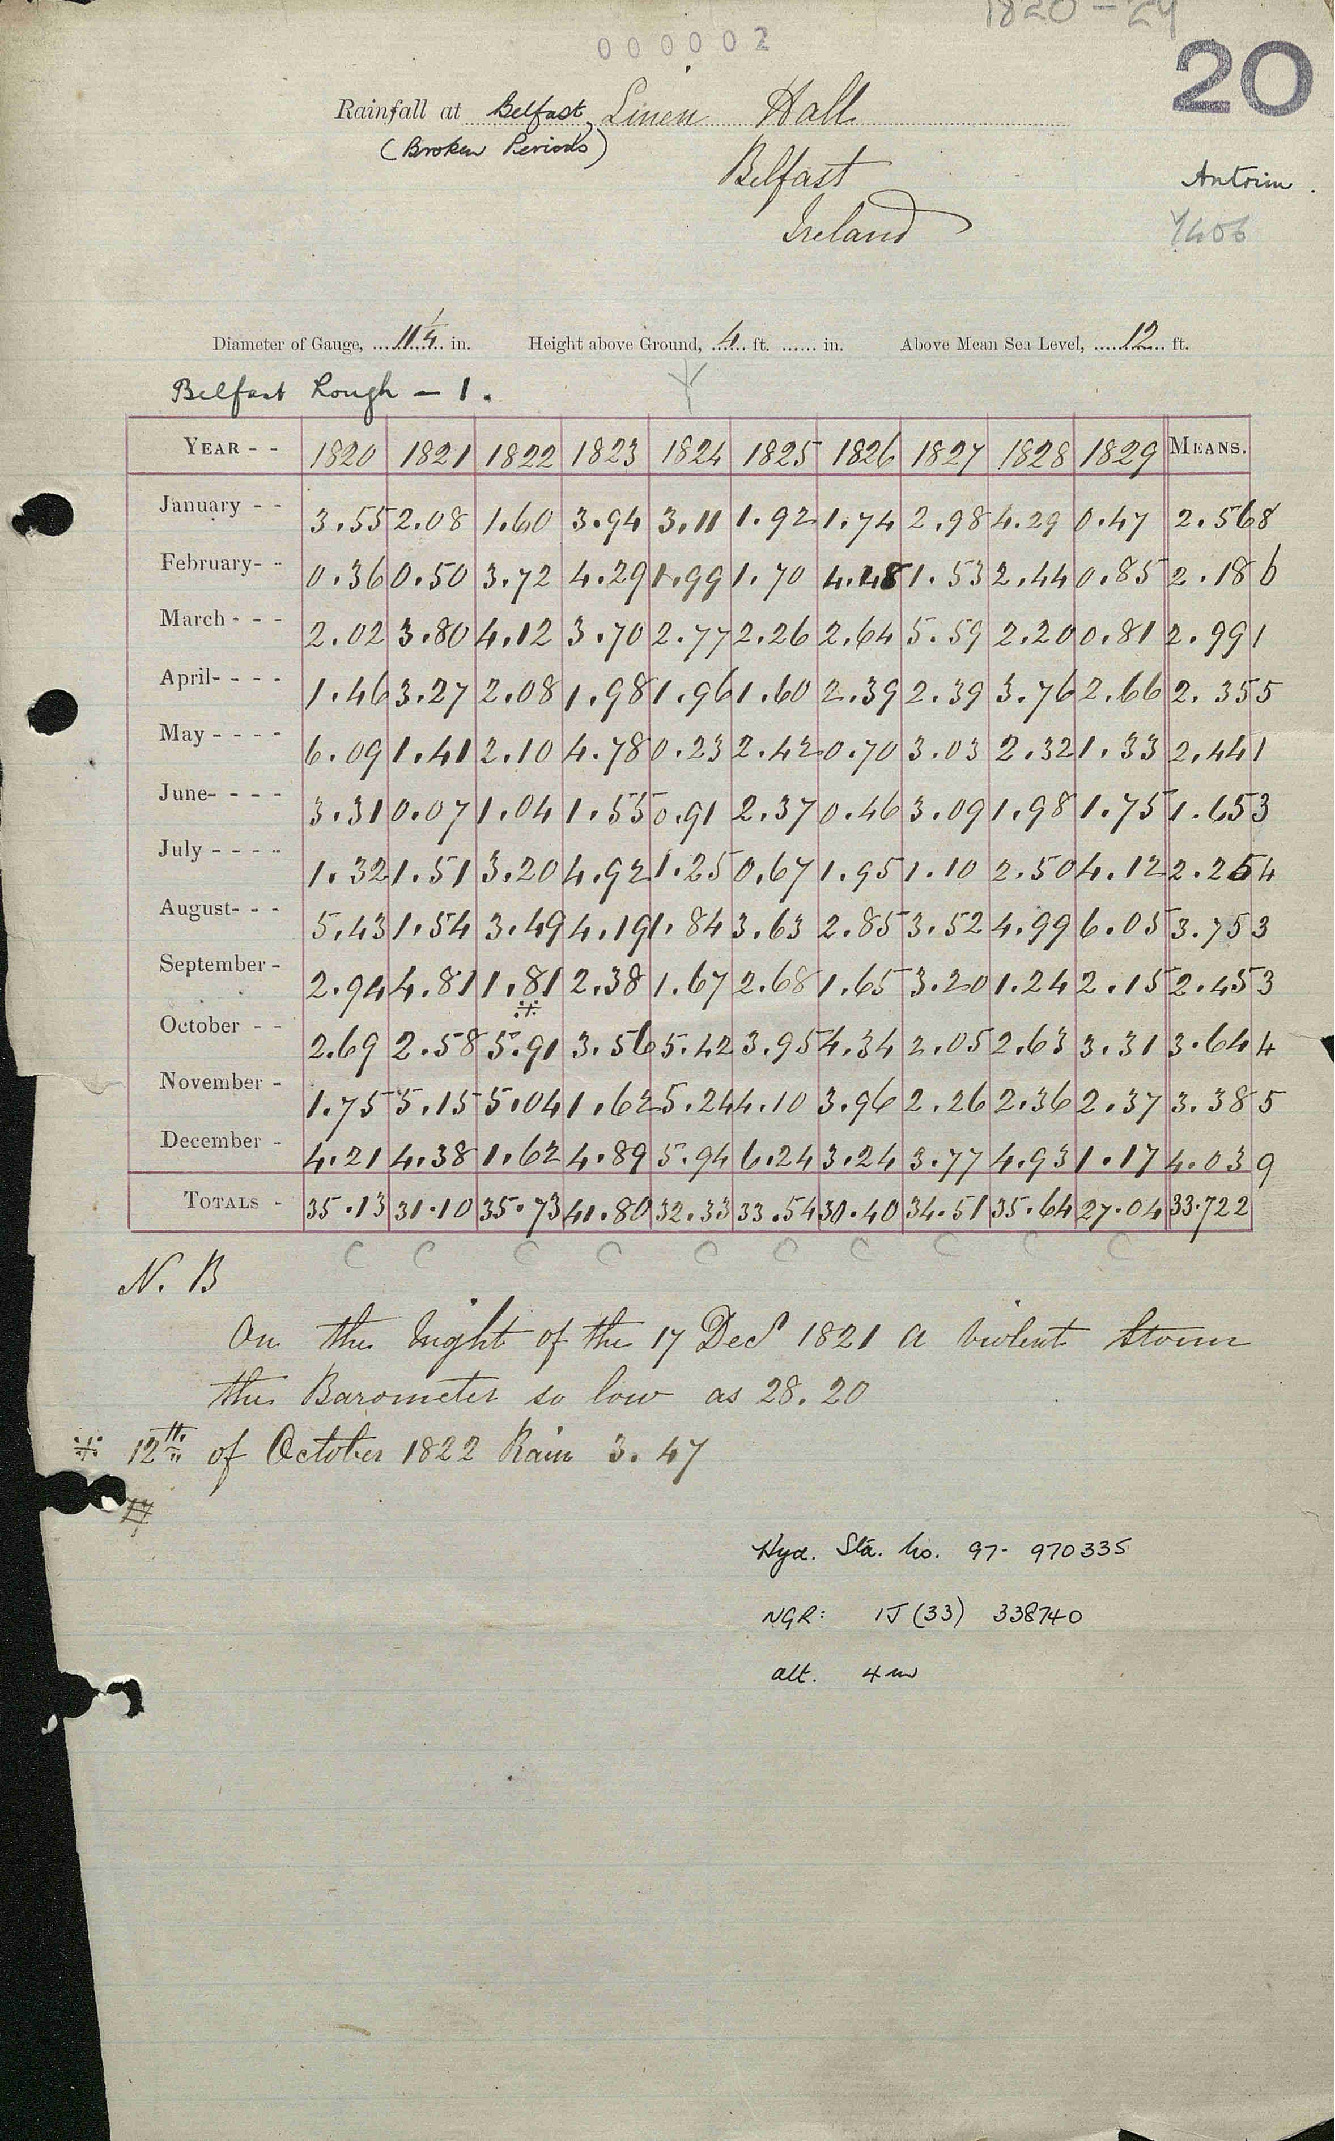 1820 - 29
000002
20
Rainfall at Belfast, Linen Hall
(Broken Periods)
Belfast
Ireland
Antrim.
Diameter of Gauge, 11 1/4 in. Height above Ground, 4 ft. ...... in. Above Mean Sea Level, 12 ft.
Belfast Lough - 1.
YEAR - - 1820 1821 1822 1823 1824 1825 1826 1827 1828 1829 MEANS.
January - - 3.55 2.08 1.60 3.94 3.11 1.92 1.74 2.98 4.29 0.47 2.568
February- - 0.36 0.50 3.72 4.29 1.99 1.70 4.48 1.53 2.44 0.85 2.186
March - - - 2.02 3.80 4.12 3.70 2.77 2.26 2.64 5.59 2.20 0.81 2.991
April- - - - 1.46 3.27 2.08 1.98 1.96 1.60 2.39 2.39 3.76 2.66 2.355
May - - - - 6.09 1.41 2.10 4.78 0.23 2.42 0.70 3.03 2.32 1.33 2.441
June- - - - 3.31 0.07 1.04 1.55 0.91 2.37 0.46 3.09 1.98 1.75 1.653
July - - - - 1.32 1.51 3.20 4.92 1.25 0.67 1.95 1.10 2.50 4.12 2.254
August- - - 5.43 1.54 3.49 4.19 1.84 3.63 2.85 3.52 4.99 6.05 3.753
September - 2.94 4.81 1.81 2.38 1.67 2.68 1.65 3.20 1.24 2.15 2.453
October - - 2.69 2.58 ※ 5.91 3.56 5.42 3.95 4.34 2.05 2.63 3.31 3.644
November - 1.75 5.15 5.04 1.62 5.24 4.10 3.96 2.26 2.36 2.37 3.385
December - 4.21 4.38 1.62 4.89 5.94 6.24 3.24 3.77 4.93 1.17 4.039
TOTALS - 35.13 31.10 35.73 41.80 32.33 33.54 30.40 34.51 35.64 27.04 33.722
C C C C C C C C C C
N. B
On the Night of the 17 Decr 1821 a violent Storm
the Barometer so low as 28.20
※ 12th of October 1822 Rain 3.47
Hyd. Sta. No. 97- 970335
NGR: IJ (33) 338740
alt. 4m